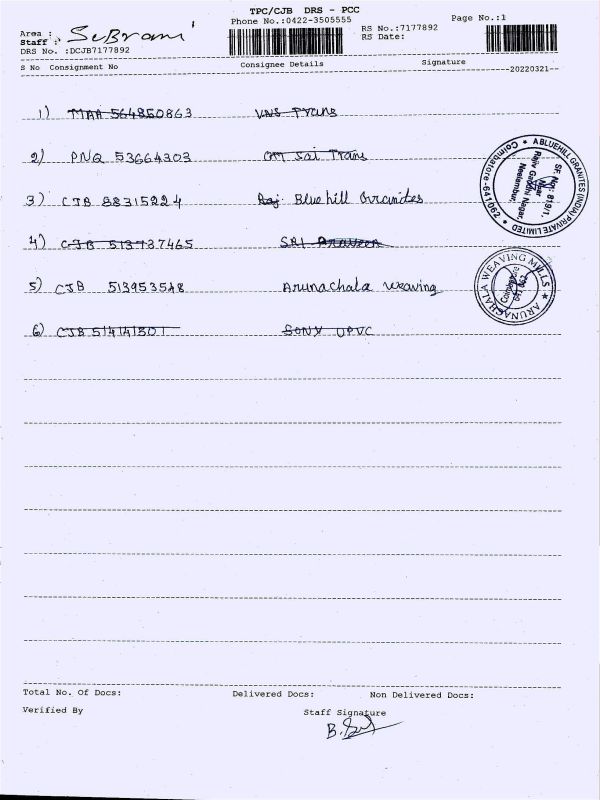 TPC/CJB DRS - PCC
Phone No.:0422-3505555
Page No.:1
Area :
Staff :
RS No.:7177892
RS Date:
DRS No. :DCJB7177892
S No Consignment No Consignee Details Signature
20220321
1) MAA 564850863 VNS Trans
2) PNQ 53664303 Sai Trans
3) CJB 88315224 Bluehill Granites
4) CJB 513737465 SRI
5) CJB 513953548 Arunachala weaving
6) CJB 514141301 SONY UPVC
A BLUEHILL GRANITES (INDIA) PRIVATE LIMITED
SF. No: 819/1,
Rajiv Gandhi Nagar,
Neelambur,
Coimbatore-641 062.
ARUNACHALA WEAVING MILLS
Coimbatore
641 062
Total No. Of Docs: Delivered Docs: Non Delivered Docs:
Verified By Staff Signature